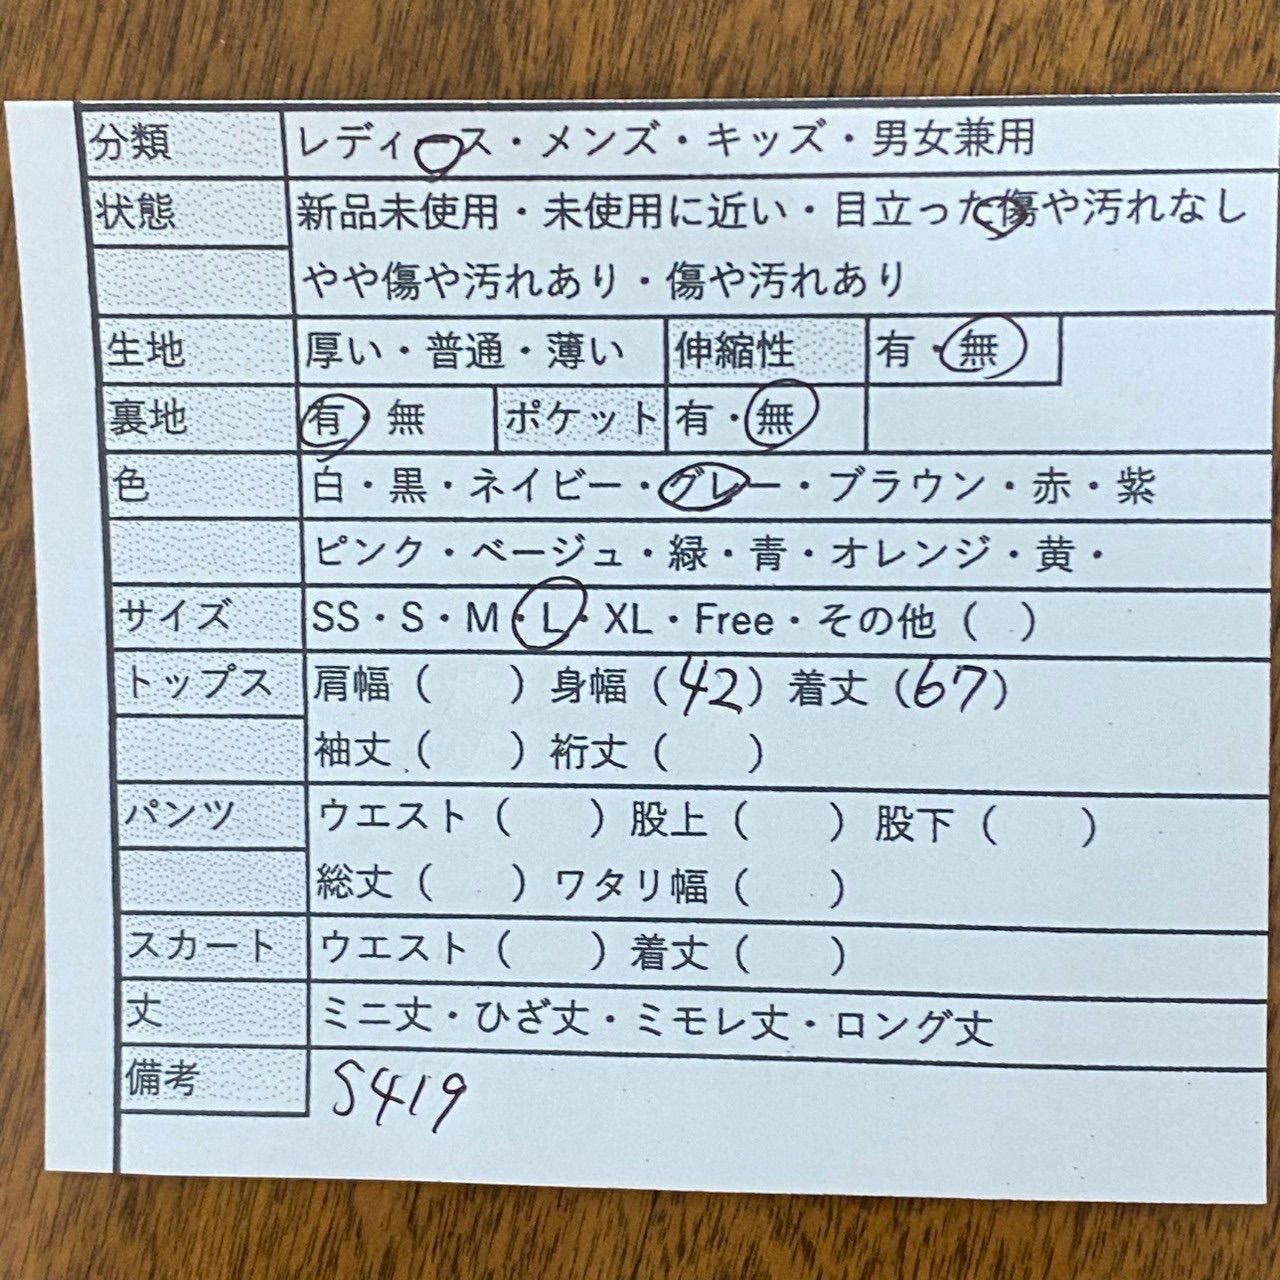 分類 レディース・メンズ・キッズ・男女兼用
状態 新品未使用・未使用に近い・目立った傷や汚れなし
やや傷や汚れあり・傷や汚れあり
生地 厚い・普通・薄い 伸縮性 有・無
裏地 有・無 ポケット 有・無
色 白・黒・ネイビー・グレー・ブラウン・赤・紫
ピンク・ベージュ・緑・青・オレンジ・黄・
サイズ SS・S・M・L・XL・Free・その他（ ）
トップス 肩幅（ ）身幅（42）着丈（67）
袖丈（ ）裄丈（ ）
パンツ ウエスト（ ）股上（ ）股下（ ）
総丈（ ）ワタリ幅（ ）
スカート ウエスト（ ）着丈（ ）
丈 ミニ丈・ひざ丈・ミモレ丈・ロング丈
備考 S419